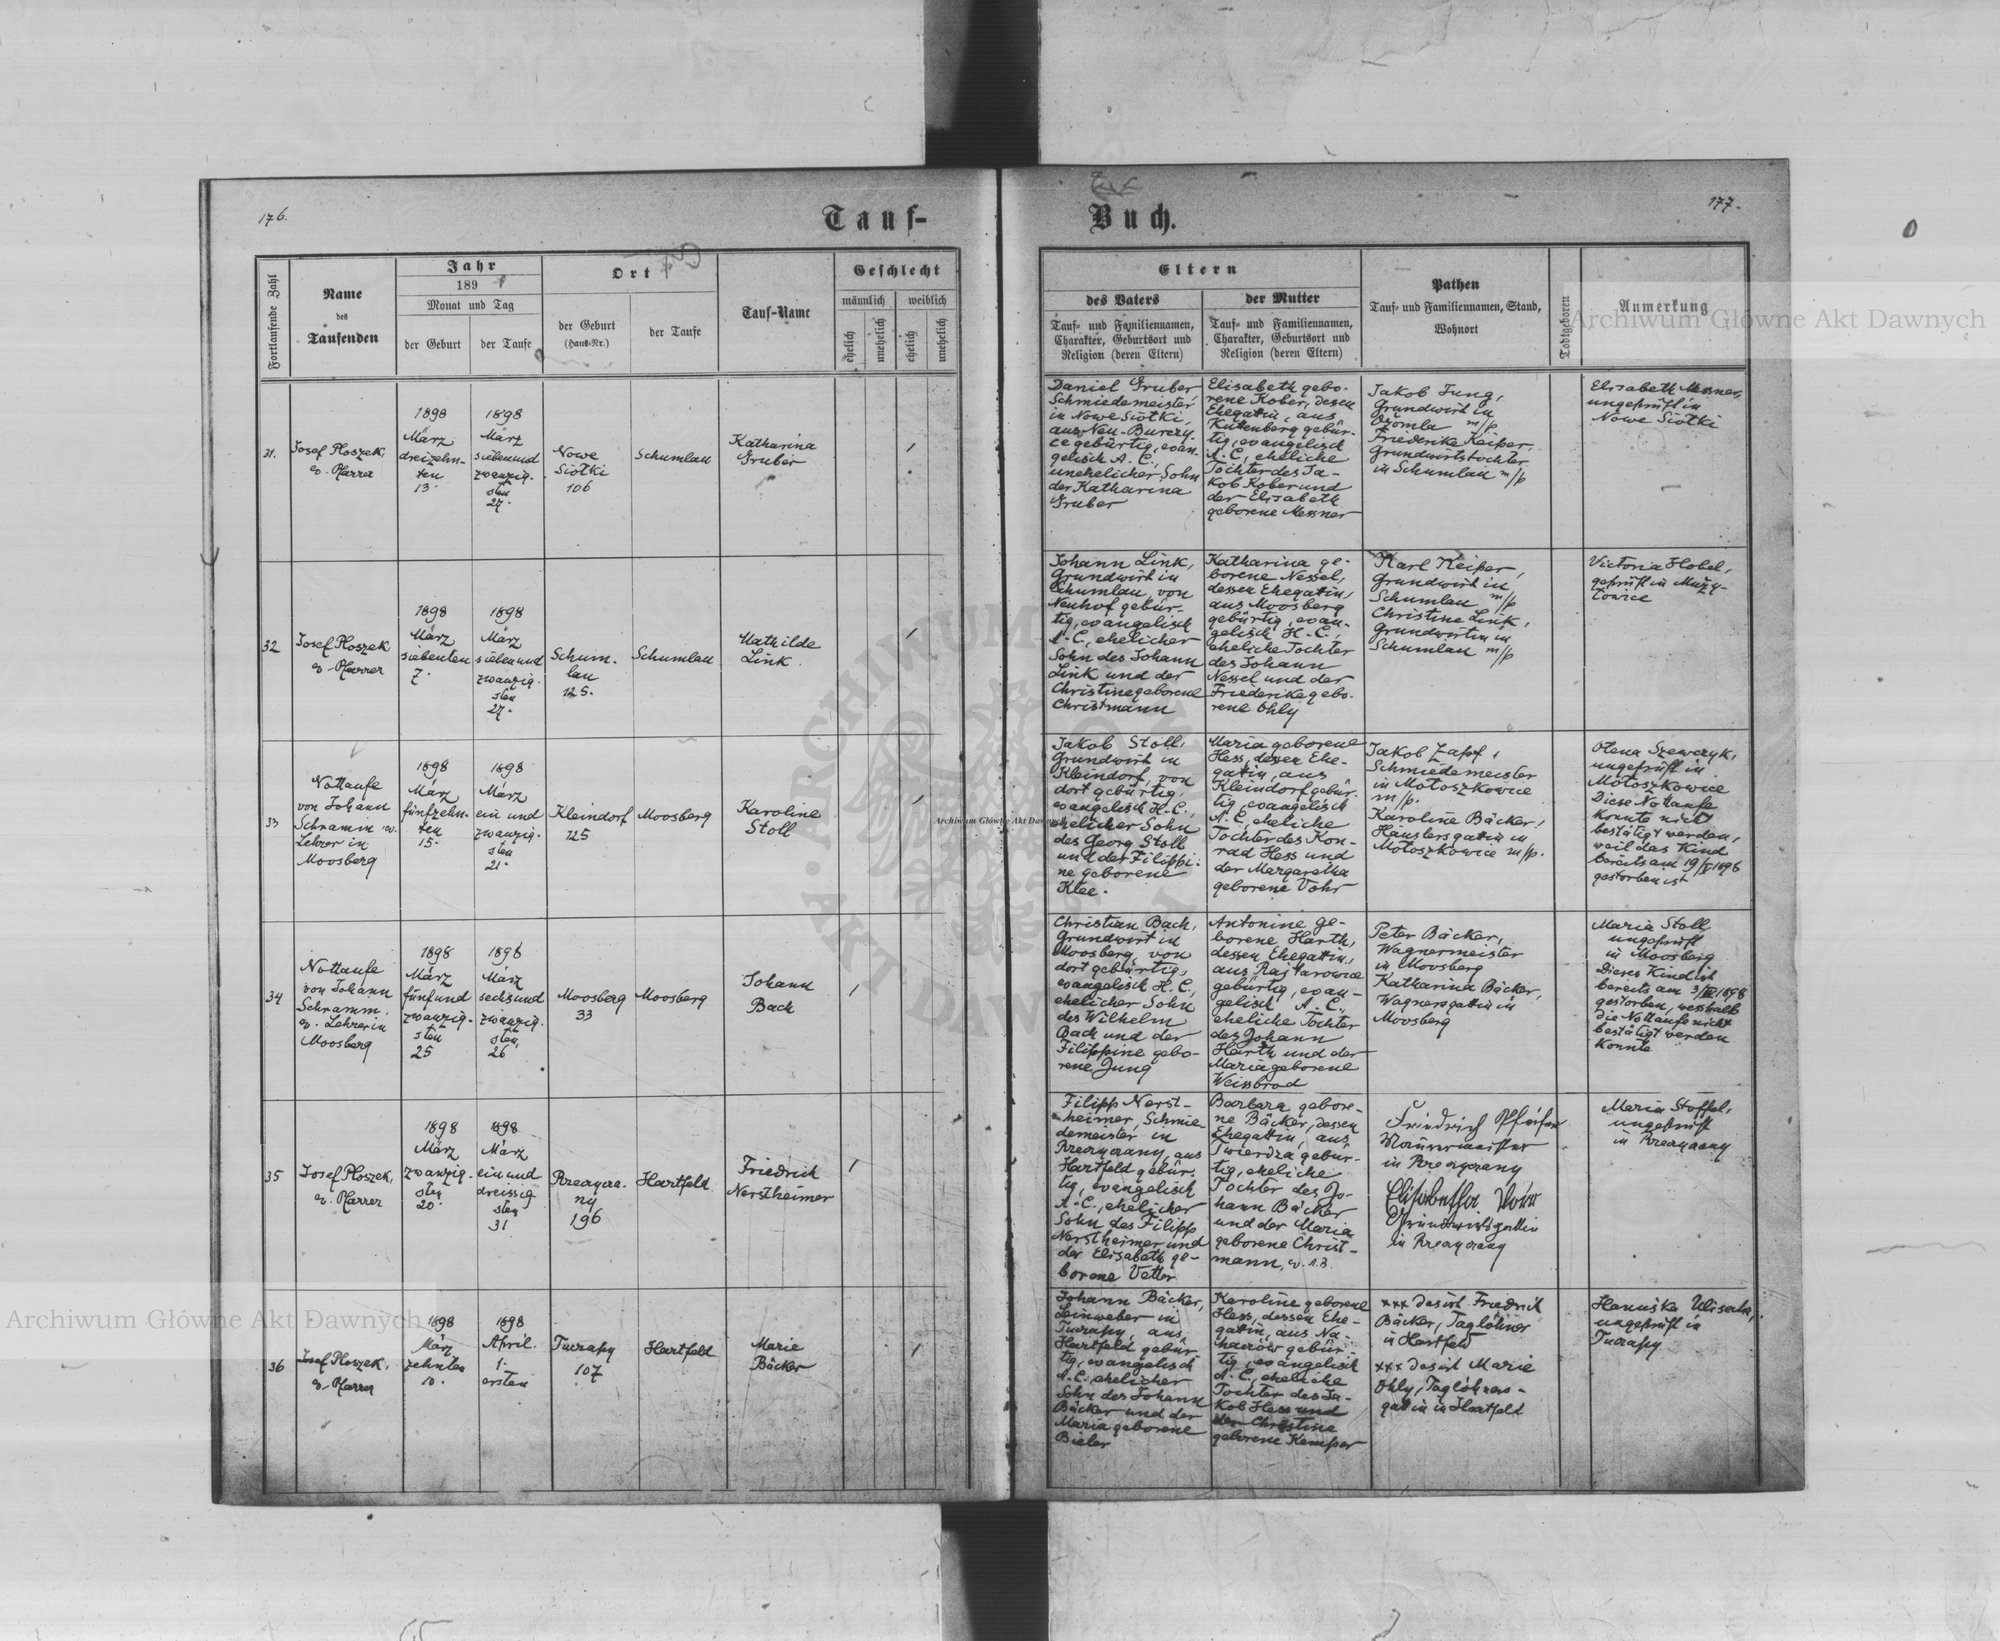 176.
Tauf-
Fortlaufende Zahl
Name
des
Taufenden
Jahr
189
Monat und Tag
der Geburt
der Taufe
Ort
der Geburt
(Haus-Nr.)
der Taufe
Tauf-Name
Geschlecht
männlich
weiblich
ehelich
unehelich
ehelich
unehelich
31.
Josef Ploszek,
ev. Pfarrer
1898
März
dreizehn-
ten
13.
1898
März
siebenund
zwanzig-
sten
27.
Nowe
Siolki
106
Schumlau
Katharina
Gruber
32
Josef Ploszek
ev. Pfarrer
1898
März
siebenten
7.
1898
März
siebenund
zwanzig-
sten
27.
Schum-
lau
125.
Schumlau
Mathilde
Link
33
Nottaufe
von Johann
Schramm ev.
Lehrer in
Moosberg
1898
März
fünfzehn-
ten
15.
1898
März
ein und
zwanzig-
sten
21.
Kleindorf
125
Moosberg
Karoline
Stoll
34
Nottaufe
von Johann
Schramm,
ev. Lehrer in
Moosberg
1898
März
fünfund
zwanzig-
sten
25
1898
März
sechsund
zwanzig-
sten,
26
Moosberg
33
Moosberg
Johann
Bach
35
Josef Ploszek,
ev. Pfarrer
1898
März
zwanzig-
sten
20.
1898
März
ein und
dreissig
sten
31
196
Hartfeld
Friedrich
Nerstheimer
36
Josef Ploszek,
ev. Pfarrer
1898
März
zehnten
10.
1898
April.
1.
ersten
107
Hartfeld
Marie
Bäcker
Buch.
177.
Eltern
des Vaters
Tauf- und Familiennamen,
Charakter, Geburtsort und
Religion (deren Eltern)
der Mutter
Tauf- und Familiennamen,
Charakter, Geburtsort und
Religion (deren Eltern)
Pathen
Tauf- und Familiennamen, Stand,
Wohnort
Todtgeboren
Anmerkung
Daniel Gruber
Schmiedemeister
in Nowe Siolki,
aus Neu-Burczy-
ce gebürtig, evan-
gelisch A. C.,
unehelicher Sohn
der Katharina
Gruber
Elisabeth gebo-
rene Kober, dessen
Ehegatin, aus
Kuttenberg gebür-
tig, evangelisch
A. C., eheliche
Tochter des Ja-
kob Kober und
der Elisabeth
geborene Messner
Jakob Jung,
Grundwirt in
Ozomla m/p
Friederike Keiper,
Grundwirtstochter
in Schumlau m/p
Elisabeth Messner,
ungeprüft in
Nowe Siolki
Johann Link,
Grundwirt in
Schumlau, von
Neuhof gebür-
tig, evangelisch
A. C., ehelicher
Sohn des Johann
Link und der
Christine geborene
Christmann
Katharina ge-
borene Nessel,
dessen Ehegatin,
aus Moosberg
gebürtig, evan-
gelisch H. C.,
eheliche Tochter
des Johann
Nessel und der
Friederike gebo-
rene Ohly
Karl Keiper,
Grundwirt in
Schumlau m/p
Christine Link,
Grundwirtin in
Schumlau m/p
Victoria Hobel,
geprüft in Muży-
łowice
Jakob Stoll,
Grundwirt in
Kleindorf, von
dort gebürtig,
evangelisch H. C.,
ehelicher Sohn
des Georg Stoll
und der Filippi-
ne geborene
Klee.
Maria geborene
Hess, dessen Ehe-
gatin, aus
Kleindorf gebür-
tig, evangelisch
A. C., eheliche
Tochter des Kon-
rad Hess und
der Margaretha
geborene
Jakob Zapf,
Schmiedemeister
in Mołoszkowice
m/p.
Karoline Bäcker,
Häuslersgatin in
Mołoszkowice m/p.
Olena Szewczyk,
ungeprüft in
Mołoszkowice
Diese Nottaufe
konnte nicht
bestätigt werden,
weil das Kind
bereits am 19/
gestorben ist
Christian Bach,
Grundwirt in
Moosberg, von
dort gebürtig,
evangelisch H. C.,
ehelicher Sohn
des Wilhelm
Bach und der
Filippine gebo-
rene Jung
Antonine ge-
borene Harth,
dessen Ehegattin,
aus Rajtarowice
gebürtig, evan-
gelisch A. C.,
eheliche Tochter
des Johann
Harth und der
Maria geborene
Weissbrod
Peter Bäcker,
Wagnermeister
in Moosberg
Katharina Bäcker,
Wagnersgattin in
Moosberg
Maria Stoll
ungeprüft
in Moosberg
Dieses Kind ist
bereits am 3/ 1898
gestorben, wesshalb
die Nottaufe nicht
bestätigt werden
konnte
Filipp Nerst-
heimer, Schmie-
demeister in
aus
Hartfeld gebür-
tig, evangelisch
A. C., ehelicher
Sohn des Filipp
Nerstheimer und
der Elisabeth ge-
borene Vetter
Barbara gebore-
ne Bäcker, dessen
Ehegattin, aus
Twierdza gebür-
tig, eheliche
Tochter des Jo-
hann Bäcker
und der Maria
geborene Christ-
mann, ev. A. B.
Friedrich Pfeifer
Maurermeister
in
Elisabetha
Grundwirtsgattin
in
Maria Stoffel,
ungeprüft
in
Johann Bäcker,
Leinweber in
aus
Hartfeld gebür-
tig, evangelisch
A. C., ehelicher
Sohn des Johann
Bäcker und der
Maria geborene
Bieler
Karoline geborene
Hess, dessen Ehe-
gatin, aus Na-
haczów gebür-
tig, evangelisch
A. C., eheliche
Tochter des Ja-
kob Hess und
der Christine
geborene Kemper
xxx das ist Friedrich
Bäcker, Taglöhner
in Hartfeld
xxx das ist Marie
Ohly, Taglöhners-
gattin in Hartfeld
Hanuśka
ungeprüft in
Archiwum Główne Akt Dawnych
Archiwum Główne Akt Dawnych
Archiwum Główne Akt Dawnych